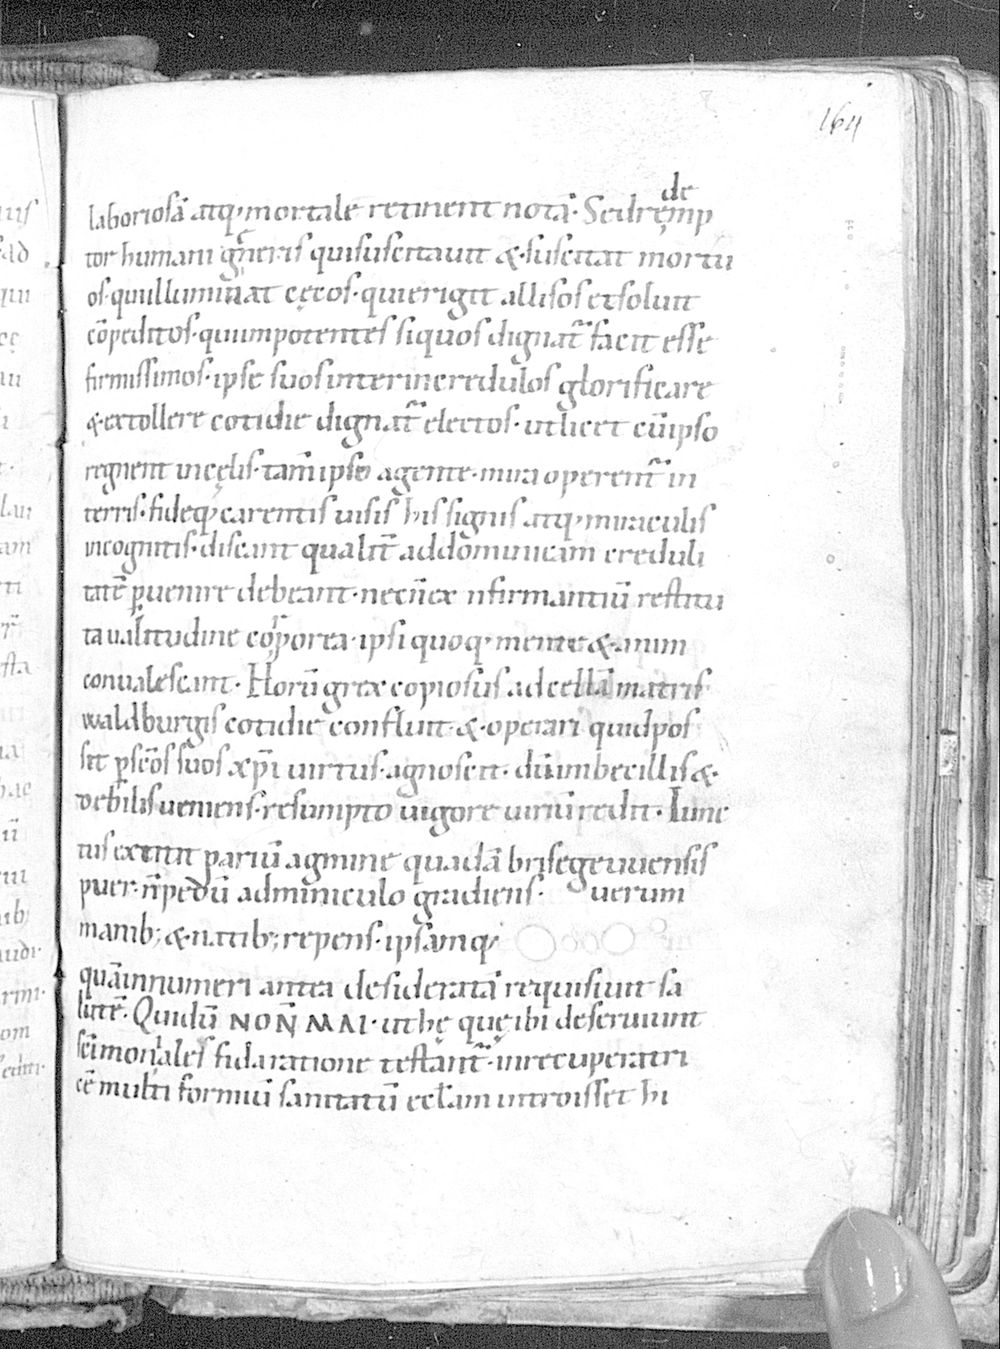 164
laboriosā atq; mortale retinent notā. Sed redēmp
tor humani gn̄eris qui suscitauit &. suscitat mortu
os. qui illuminat cęcos. qui erigit allisos et soluit
cōpeditos. qui inpotentes siquos dignat̄ facit esse
firmissimos. ipse suos inter incredulos glorificare
&. extollere cotidie dignat̄ electos. ut licet cū ipso
regnent in cęlis. tam̄ ipso agente. mira operent̄ in
terris. fideq; carentis uisis his signis atq; miraculis
incognitis. discant qualit̄ ad dominicam creduli
tatē ꝑuenire debeant. necn̄ ex infirmantiū restitu
ta ualitudine corporea. ipsi quoq; mente &. anim
conualescant. Horū grex copiosus ad cellā matris
waldburgis cotidie confluit. &. operari quid pos
sit ꝑ sc̄os suos xp̄i uirtus. agnoscit. dū inbecillis &.
debilis ueniens. resumpto uigore uiriū redit. Iunc
tus extitit pariū agmine quadā brisegeuuensis
puer. n̄ pedū adminiculo gradiens. uerum
manib; &. natib; repens. ipsamq;
quā innumeri antea desideratā requisiuit sa
lutē. Qui dū NON̄ MAI. ut hę quę ibi deseruiunt
sc̄imoniales fida ratione testant̄. inrecuperatri
cē multi formiū sanitatū eccl̄am introisset hi